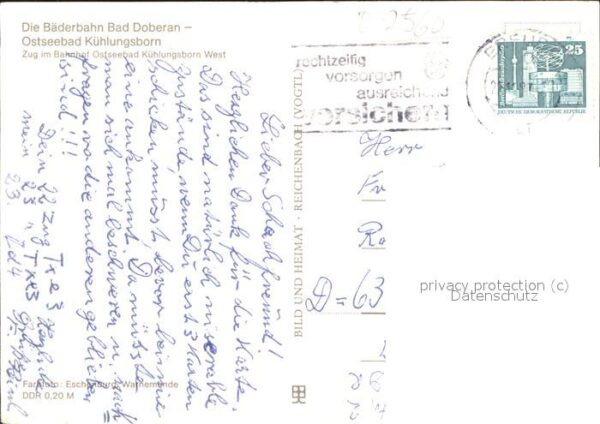 Die Bäderbahn Bad Doberan –
Ostseebad Kühlungsborn
Zug im Bahnhof Ostseebad Kühlungsborn West
Lieber Schachfreund!
Herzlichen Dank für die Karte.
Das sind natürlich miserable
Zustände, wenn Du erst 3 Karten
schicken mußt, bevor bei mir
eine ankommt. Da müßte
man sich mal beschweren u. nach
fragen wo die anderen geblieben
sind!!!
Dein 22 Zug Txe3
mein 23. " Txe3
23. Dd4
Herzliche
Grüße
Farbfoto: Eschenburg, Warnemünde
DDR 0,20 M
BILD UND HEIMAT · REICHENBACH (VOGTL)
D-2560
rechtzeitig
vorsorgen
ausreichend
versichern
25
DEUTSCHE DEMOKRATISCHE REPUBLIK
Herr
Fr
Ro
D=63
privacy protection (c)
Datenschutz